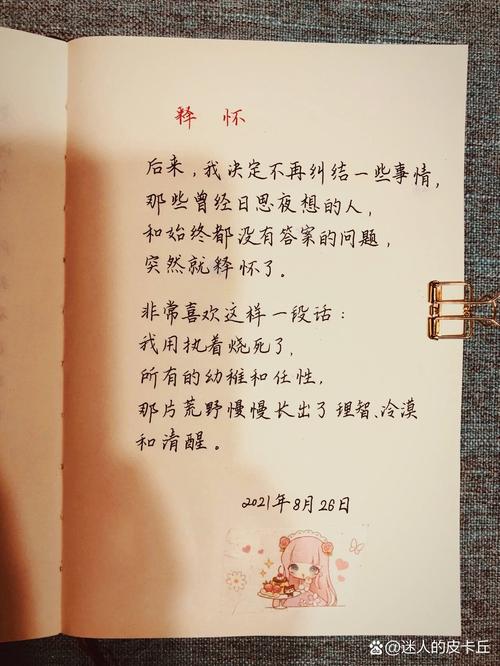 释怀
后来,我决定不再纠结一些事情,
那些曾经日思夜想的人,
和始终都没有答案的问题,
突然就释怀了。
非常喜欢这样一段话:
我用执着烧死了,
所有的幼稚和任性,
那片荒野慢慢长出了理智、冷漠
和清醒。
2021年8月26日
@迷人的皮卡丘